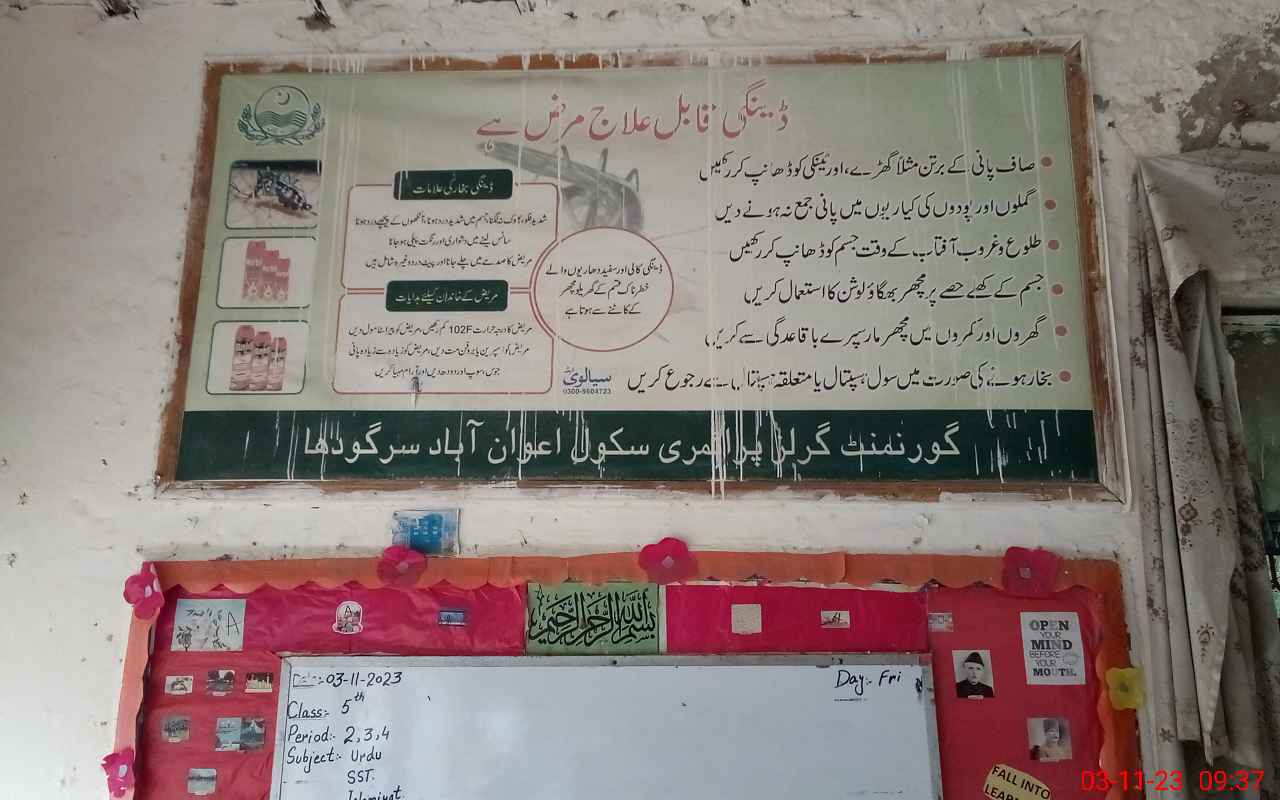 ڈینگی قابل علاج مرض ہے
صاف پانی کے برتن مثلاً گھڑے، اور ٹینکی کو ڈھانپ کر رکھیں
گملوں اور پودوں کی کیاریوں میں پانی جمع نہ ہونے دیں
طلوع و غروب آفتاب کے وقت جسم کو ڈھانپ کر رکھیں
جسم کے کھلے حصے پر مچھر بھگاؤ لوشن کا استعمال کریں
گھروں اور کمروں میں مچھر مار سپرے باقاعدگی سے کریں
بخار ہونے کی صورت میں سول ہسپتال یا متعلقہ ہسپتال سے رجوع کریں
ڈینگی کالی اور سفید دھاریوں والے
خطرناک قسم کے گھریلو مچھر
کے کاٹنے سے ہوتا ہے
ڈینگی بخار کی علامات
شدید فلو، بھوک نہ لگنا، جسم میں شدید درد ہونا، آنکھوں کے پیچھے درد ہونا
سانس لینے میں دشواری اور رنگت پیلی ہو جانا
مریض کا صدمے میں چلے جانا اور پیٹ درد وغیرہ شامل ہیں
مریض کے خاندان کیلئے ہدایات
مریض کا درجہ حرارت 102F کم رکھیں، مریض کو پیراسٹامول دیں
مریض کو اسپرین یا بروفن مت دیں، مریض کو زیادہ سے زیادہ پانی
جوس سوپ اور دودھ دیں اور آرام مہیا کریں
سیالوی
0300-9604723
گورنمنٹ گرلز پرائمری سکول اعوان آباد سرگودھا
بسم الله الرحمن الرحيم
A
A
OPEN
YOUR
MIND
BEFORE
YOUR
MOUTH.
Date:- 03-11-2023
Day:- Fri
Class:- 5th
Period:- 2,3,4
Subject:- Urdu
SST.
Islamiyat
FALL INTO
03-11-23 09:37